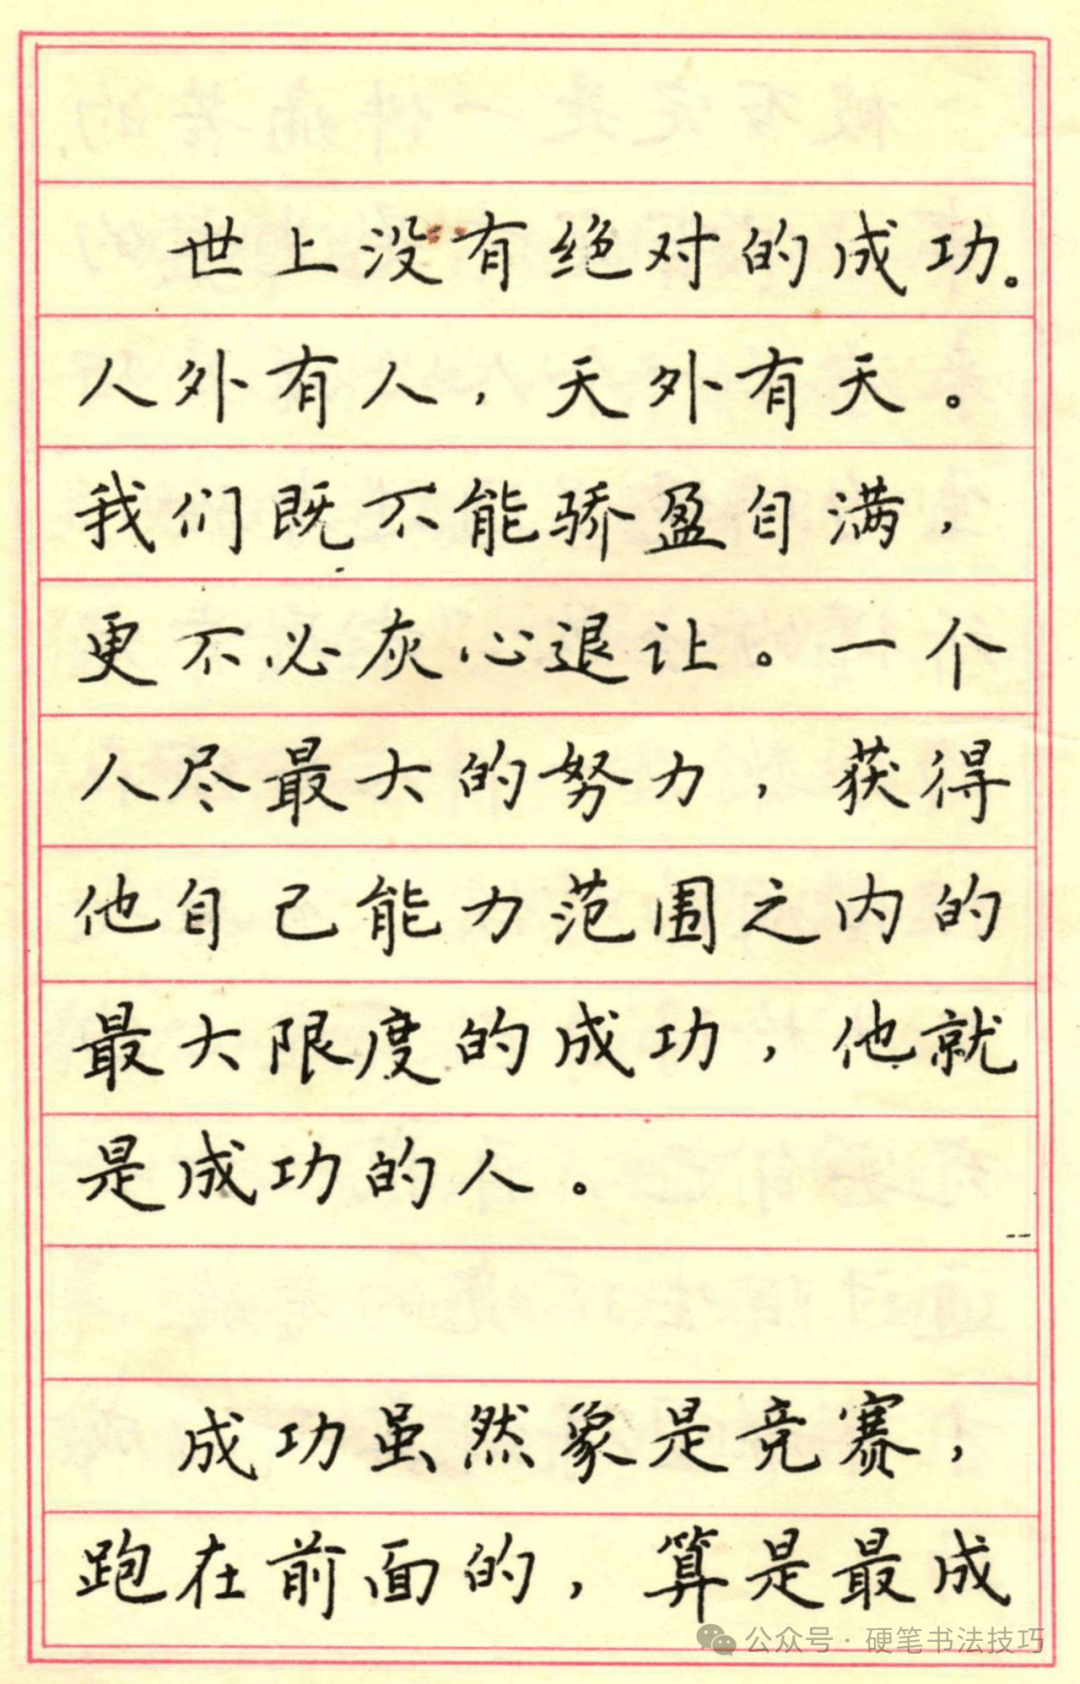 世上没有绝对的成功。
人外有人，天外有天。
我们既不能骄盈自满，
更不必灰心退让。一个
人尽最大的努力，获得
他自己能力范围之内的
最大限度的成功，他就
是成功的人。
成功虽然象是竞赛，
跑在前面的，算是最成
公众号·硬笔书法技巧